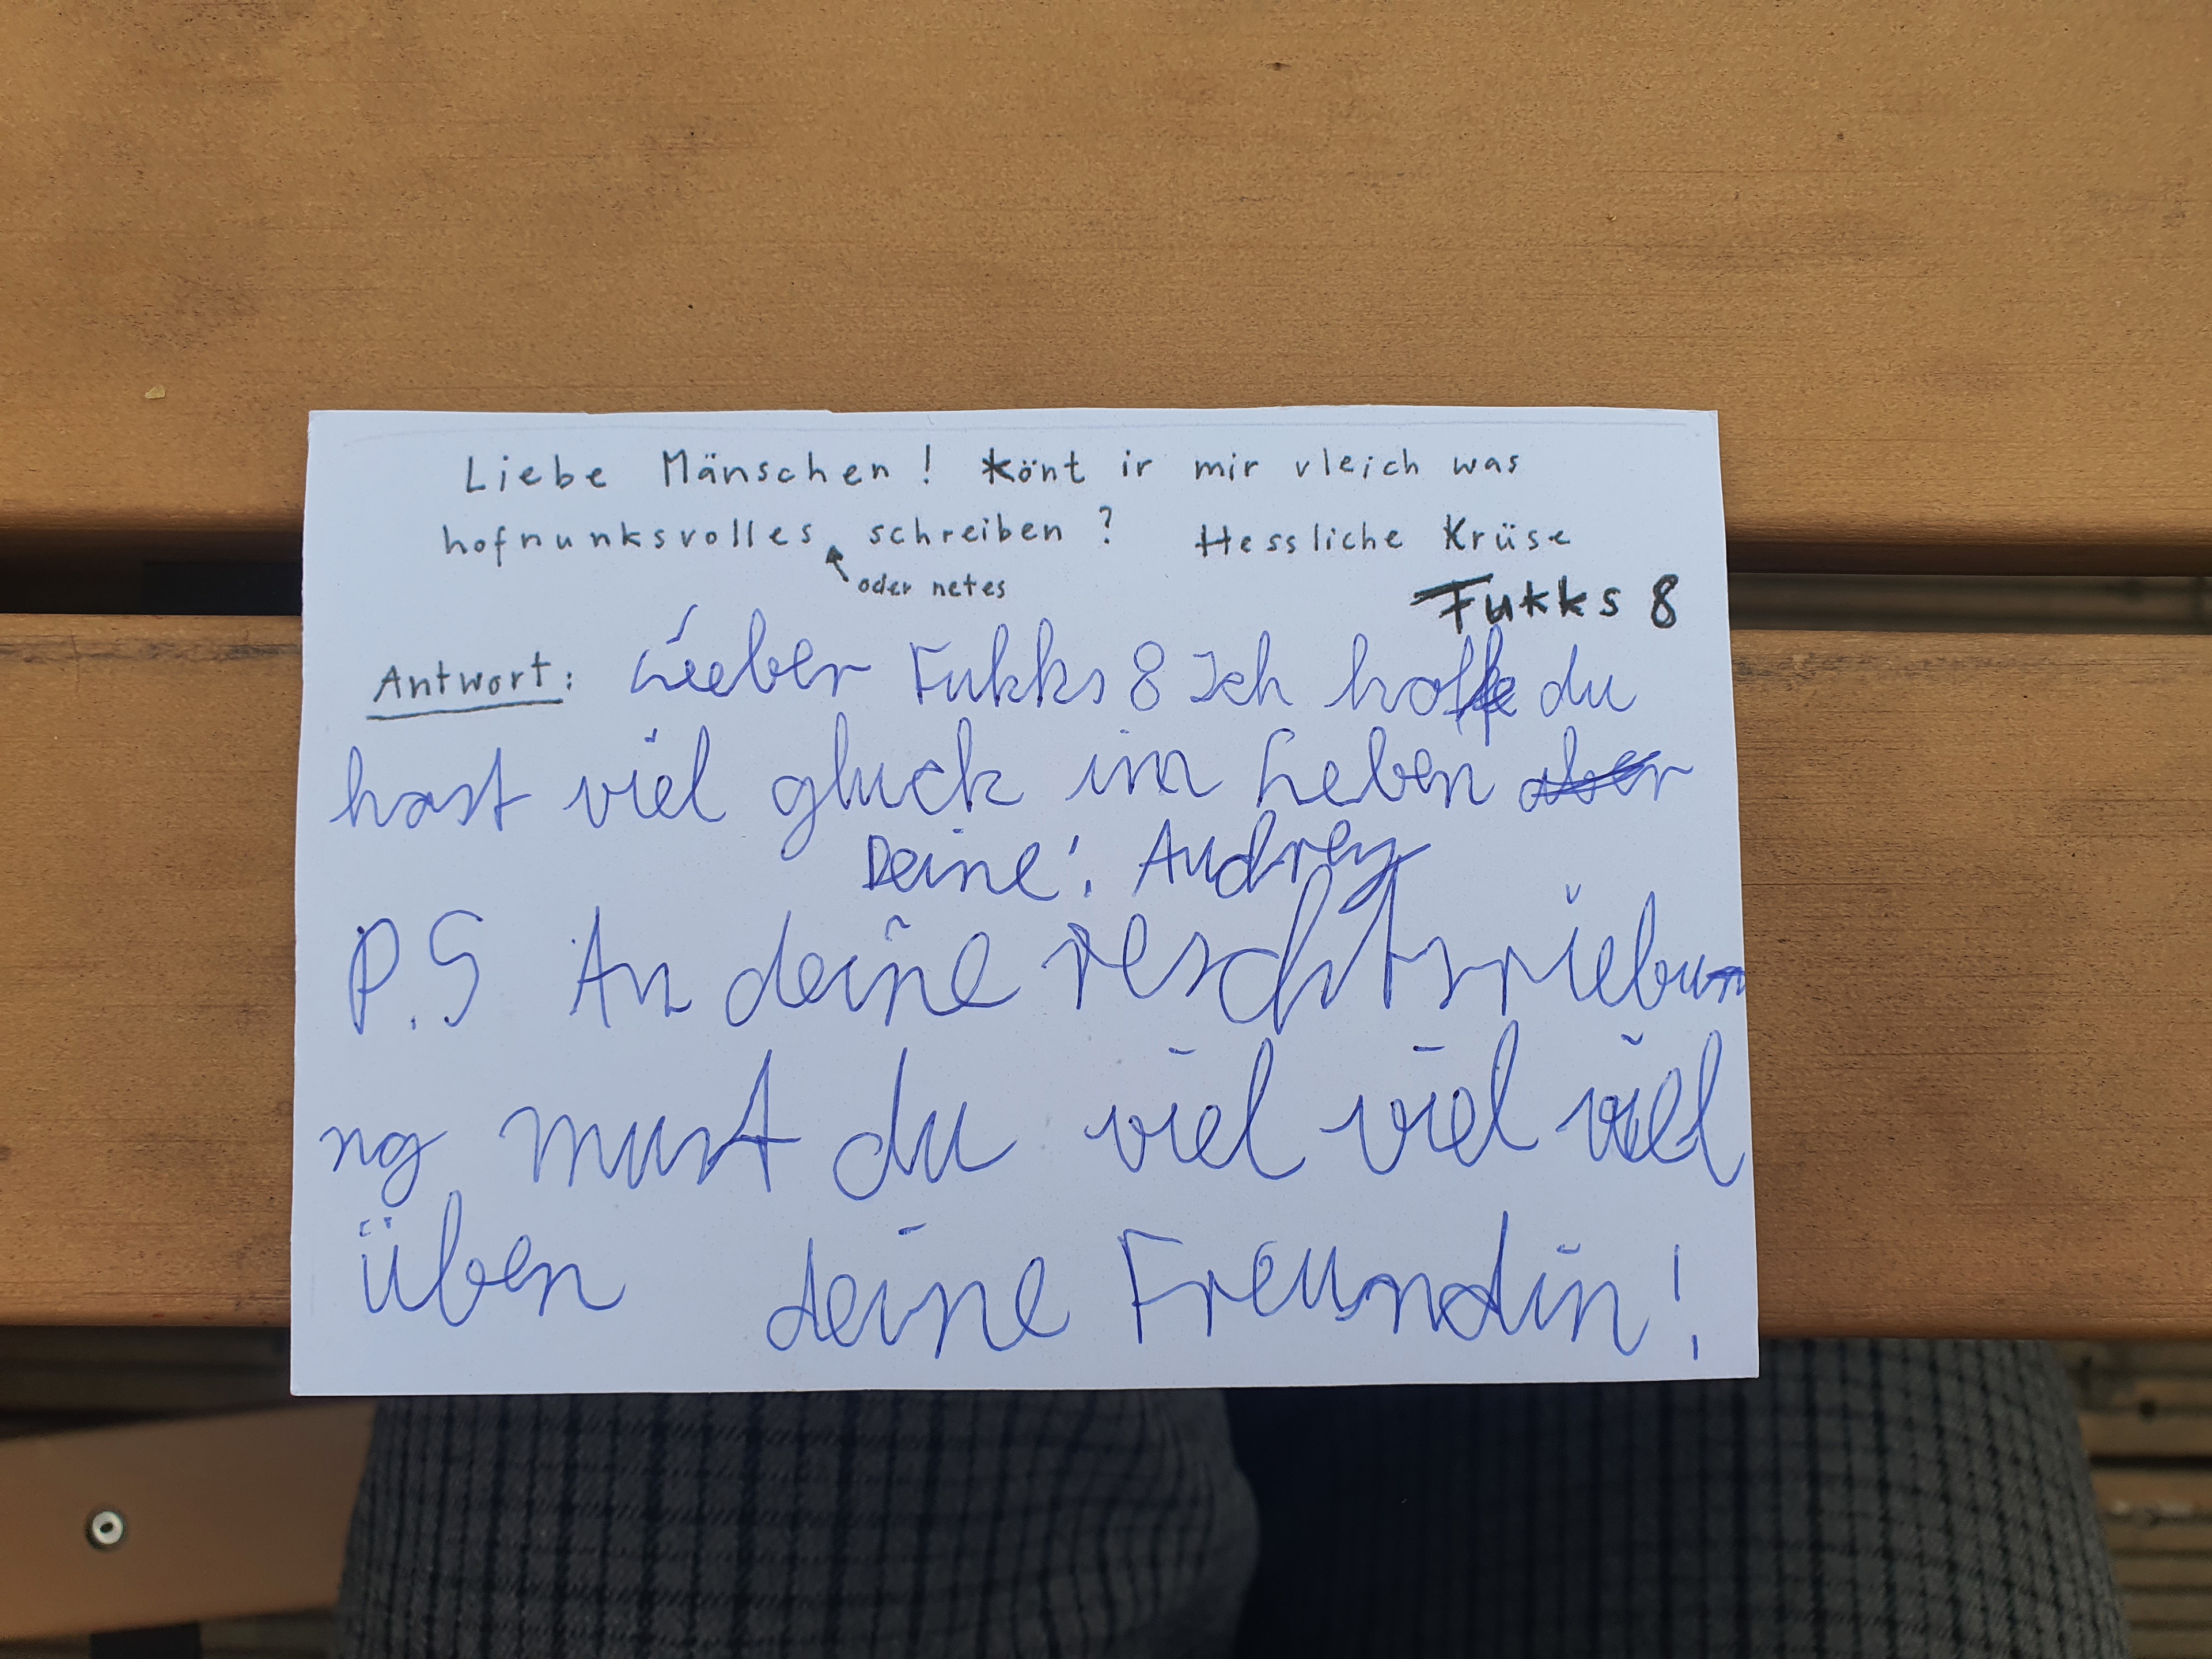 Liebe Mänschen! Könt ir mir vleich was
hofnunksvolles schreiben? Hessliche Krüse
oder netes
Fukks 8
Antwort: Lieber Fukks 8 Ich hoffe du
hast viel gluck im Leben aber
Deine! Audrey
P.S An deine reschtsriebun
ng must du viel viel viel
üben deine Freundin!